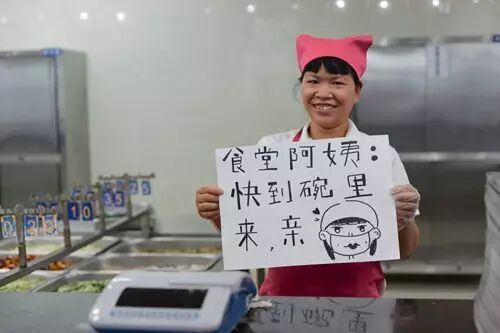 食堂阿姨:
快到碗里
来,亲
10
35